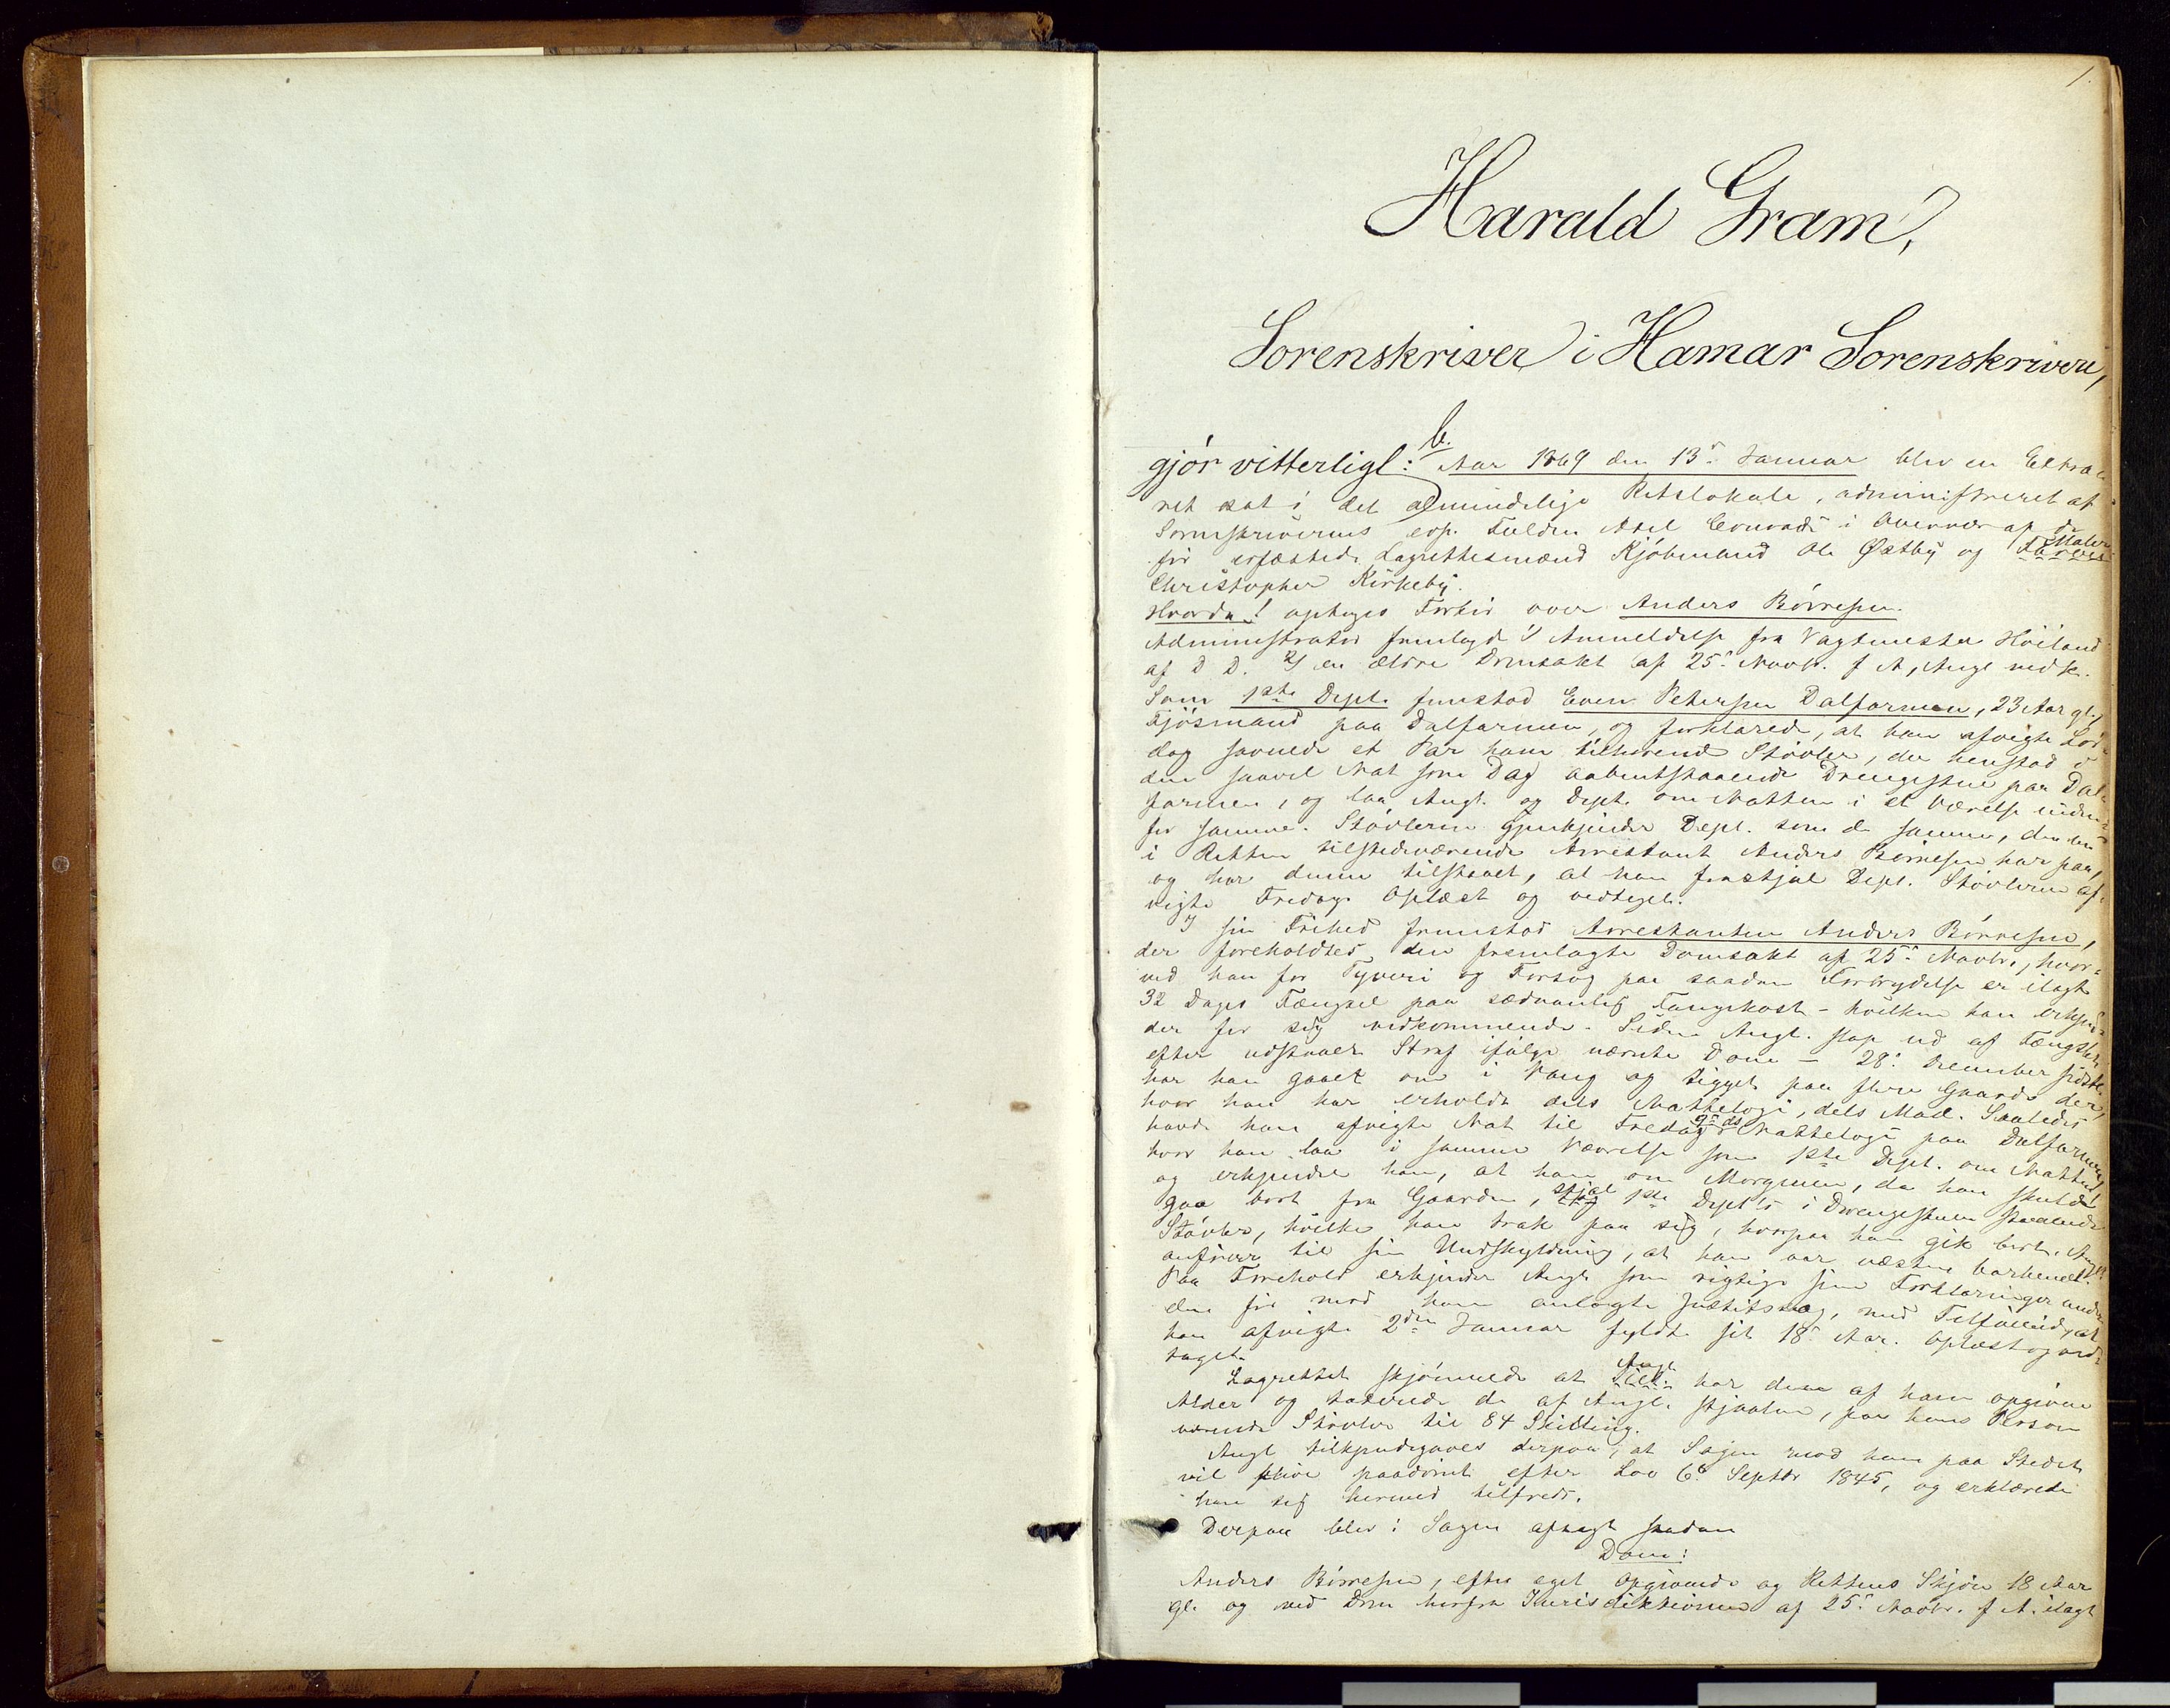 1.
Harald Gram,
Sorenskriver i Hamar Sorenskriveri,
b.
gjör vitterligt: Aar 1869 den 13de Januar blev en Extra-
ret sat i det almindelige Retslokale, administreret af
Sorenskriverens edsv. Fuldm. Axel Conradi i Overvær af de
for erfæstede Lagrettesmænd Kjöbmand Ole Østby og Farver Maler
Christopher Kirkeby.
Hvorda! optoges Forhör over Anders Börresen.
Administrator fremlagde 1/ Anmeldelse fra Vagtmester Höiland
af D D. 2/ en ældre Domsakt af 25de Novbr. f A, Angl. vedk.
Som 1ste Depl. fremstod Even Petersen Dalfarmen, 23 Aar gl.,
Fjösmand paa Dalfarmen, og forklarede, at han afvigte Lör-
dag savnede et Par ham tilhørende Stövler, der henstod i
den saavel Nat som Dag aabentstaaende Drengestue paa Dal-
farmen, og laa Angl. og Dept. om Natten i et Værelse inden-
for samme. Stövlerne gjenkjender Depl. som de samme, den nu
i Retten tilstedeværende Arrestant Anders Börresen har paa,
og har denne tilstaaet, at han frastjal Depl. Stövlerne af-
vigte Fredag. Oplæst og vedtaget.
I sin Frihed fremstod Arrestanten Anders Börresen,
der foreholdtes den fremlagte Domsakt af 25de Novbr., hvor-
ved han for Tyveri og Forsög paa saadan Forbrydelse er ilagt
32 Dages Fængsel paa sædvanlig Fangekost - hvilken han erkjend-
der for sig vedkommende. Siden Angl. slap ud af Fængslet,
efter udstaaet Straf ifölge nævnte Dom - 28de December sidstl.
har han gaaet om i Vang og tigget paa flere Gaarde der,
hvor han har erholdt dels Natteloge, dels Mad. Saaledes
havde han afvigte Nat til Fredag 9de ds Natteloge paa Dalfarmen,
hvor han laa i samme Værelse som 1ste Depl. om Natten,
og erkjender han, at han om Morgenen, da han skulde
gaa bort fra Gaarden, tog stjal 1ste Depl's i Drengestuen staaende
Stövler, hvilke han trak paa sig, hvorpaa han gik bort. Angl.
anförer til sin Undskyldning, at han var næsten barbenet.
Paa Forehold erkjender Angl. som rigtige sine Forklaringer under
den för mod ham anlagte Justitssag, med Tilföiende, at
han afvigte 2den Januar fyldte sit 18de Aar. Oplæst og ved-
taget.
Lagrettet skjönnede at Tilt. Angl. har den af ham opgivne
Alder og taxerede de af Angl. stjaalne, paa hans Person
værende Stövler til 84 Skilling.
Angl tilkjendegaves derpaa, at Sagen mod ham paa Stedet
vil blive paadömt efter Lov 6te Septbr 1845, og erklærede
han sig hermed tilfreds.
Derpaa blev i Sagen afsagt saadan
Dom:
Anders Börresen, efter eget Opgivende og Rettens Skjön 18 Aar
gl. og ved Dom herfra Jurisdiktionen af 25de Novbr. f A. ilagt